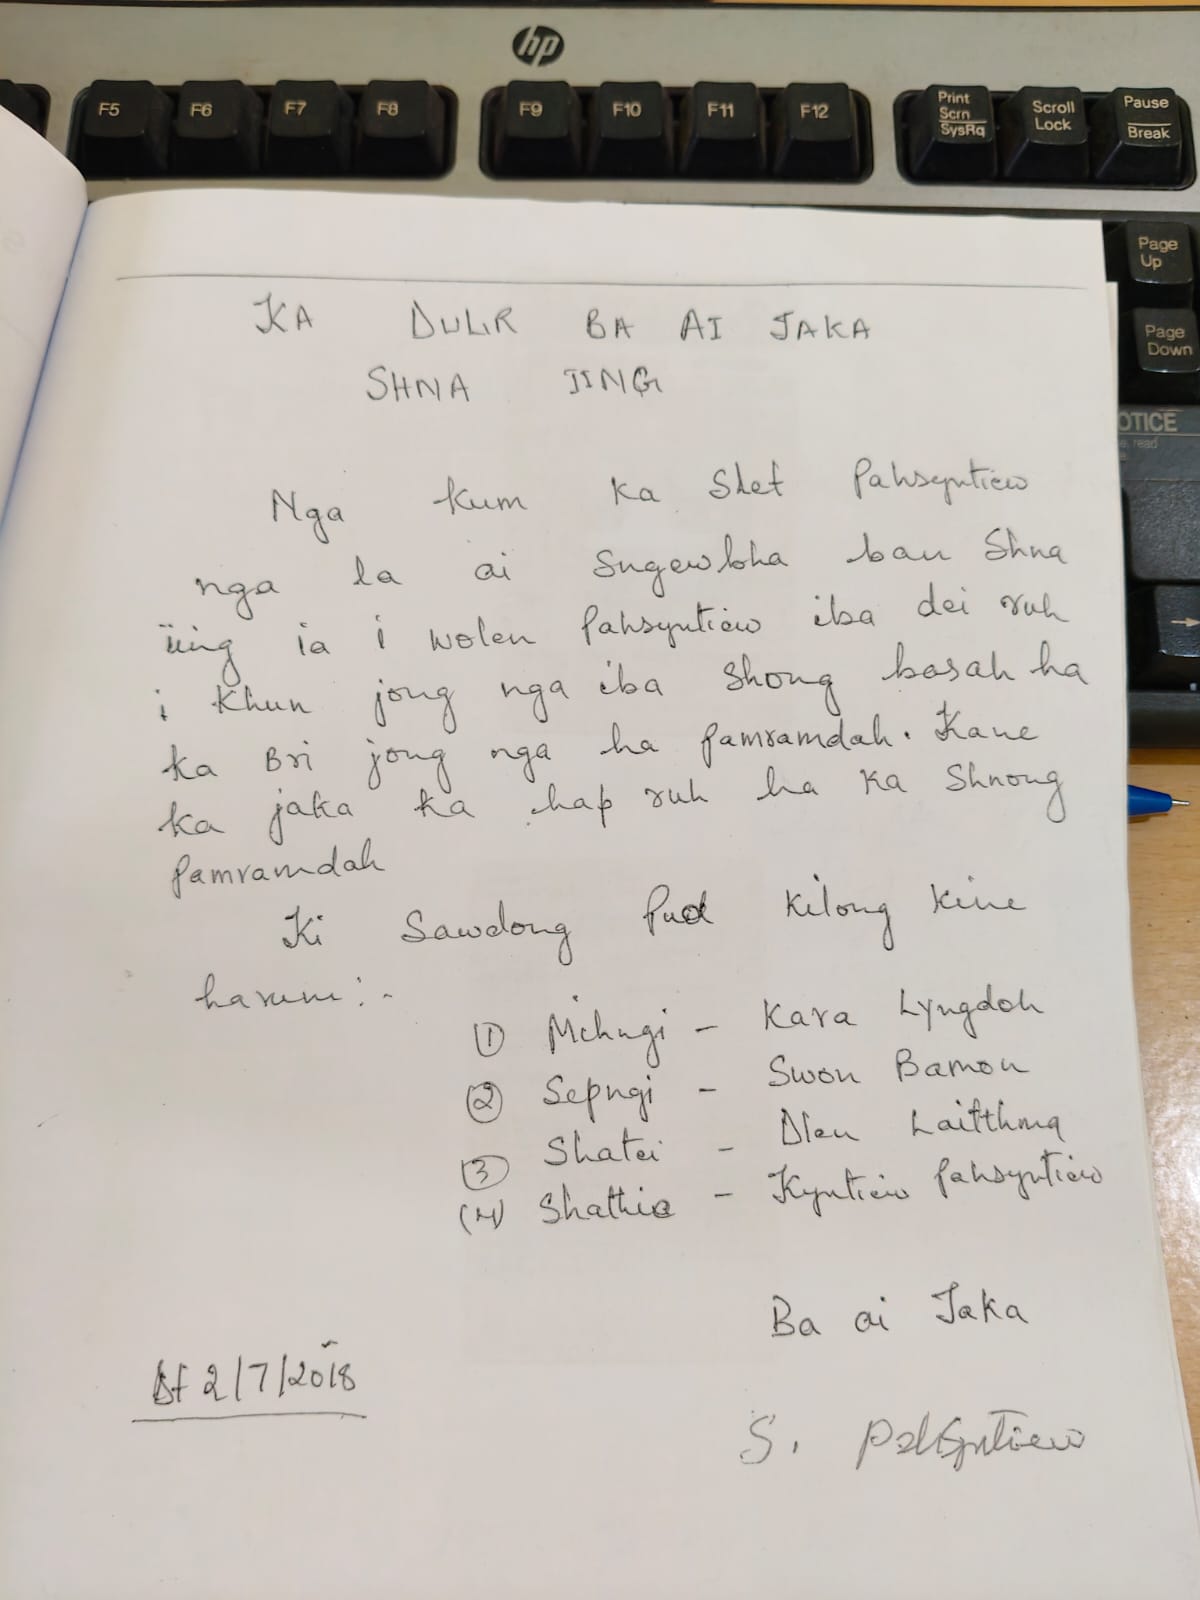 hp
F5 F6 F7 F8 F9 F10 F11 F12 Print Scrn SysRq Scroll Lock Pause Break
Page Up
Page Down
OTICE
e, read
KA DULIR BA AI JAKA
SHNA IING
Nga kum ka Shet Pahsyntiew
nga la ai sngewbha ban Shna
ïing ia i wolen Pahsyntiew iba dei ruh
i khun jong nga iba shong basah ha
ka Bri jong nga ha Pamramdah. Kane
ka jaka ka hap ruh ha ka Shnong
Pamramdah
Ki Sawdong Pud kilong kine
harum:-
① Mihngi - Kara Lyngdoh
② Sepngi - Swon Bamon
③ Shatei - Dlen Laitthma
(4) Shathie - Kyntiew Pahsyntiew
Ba ai Jaka
Dt 2/7/2018
S. Pahsyntiew